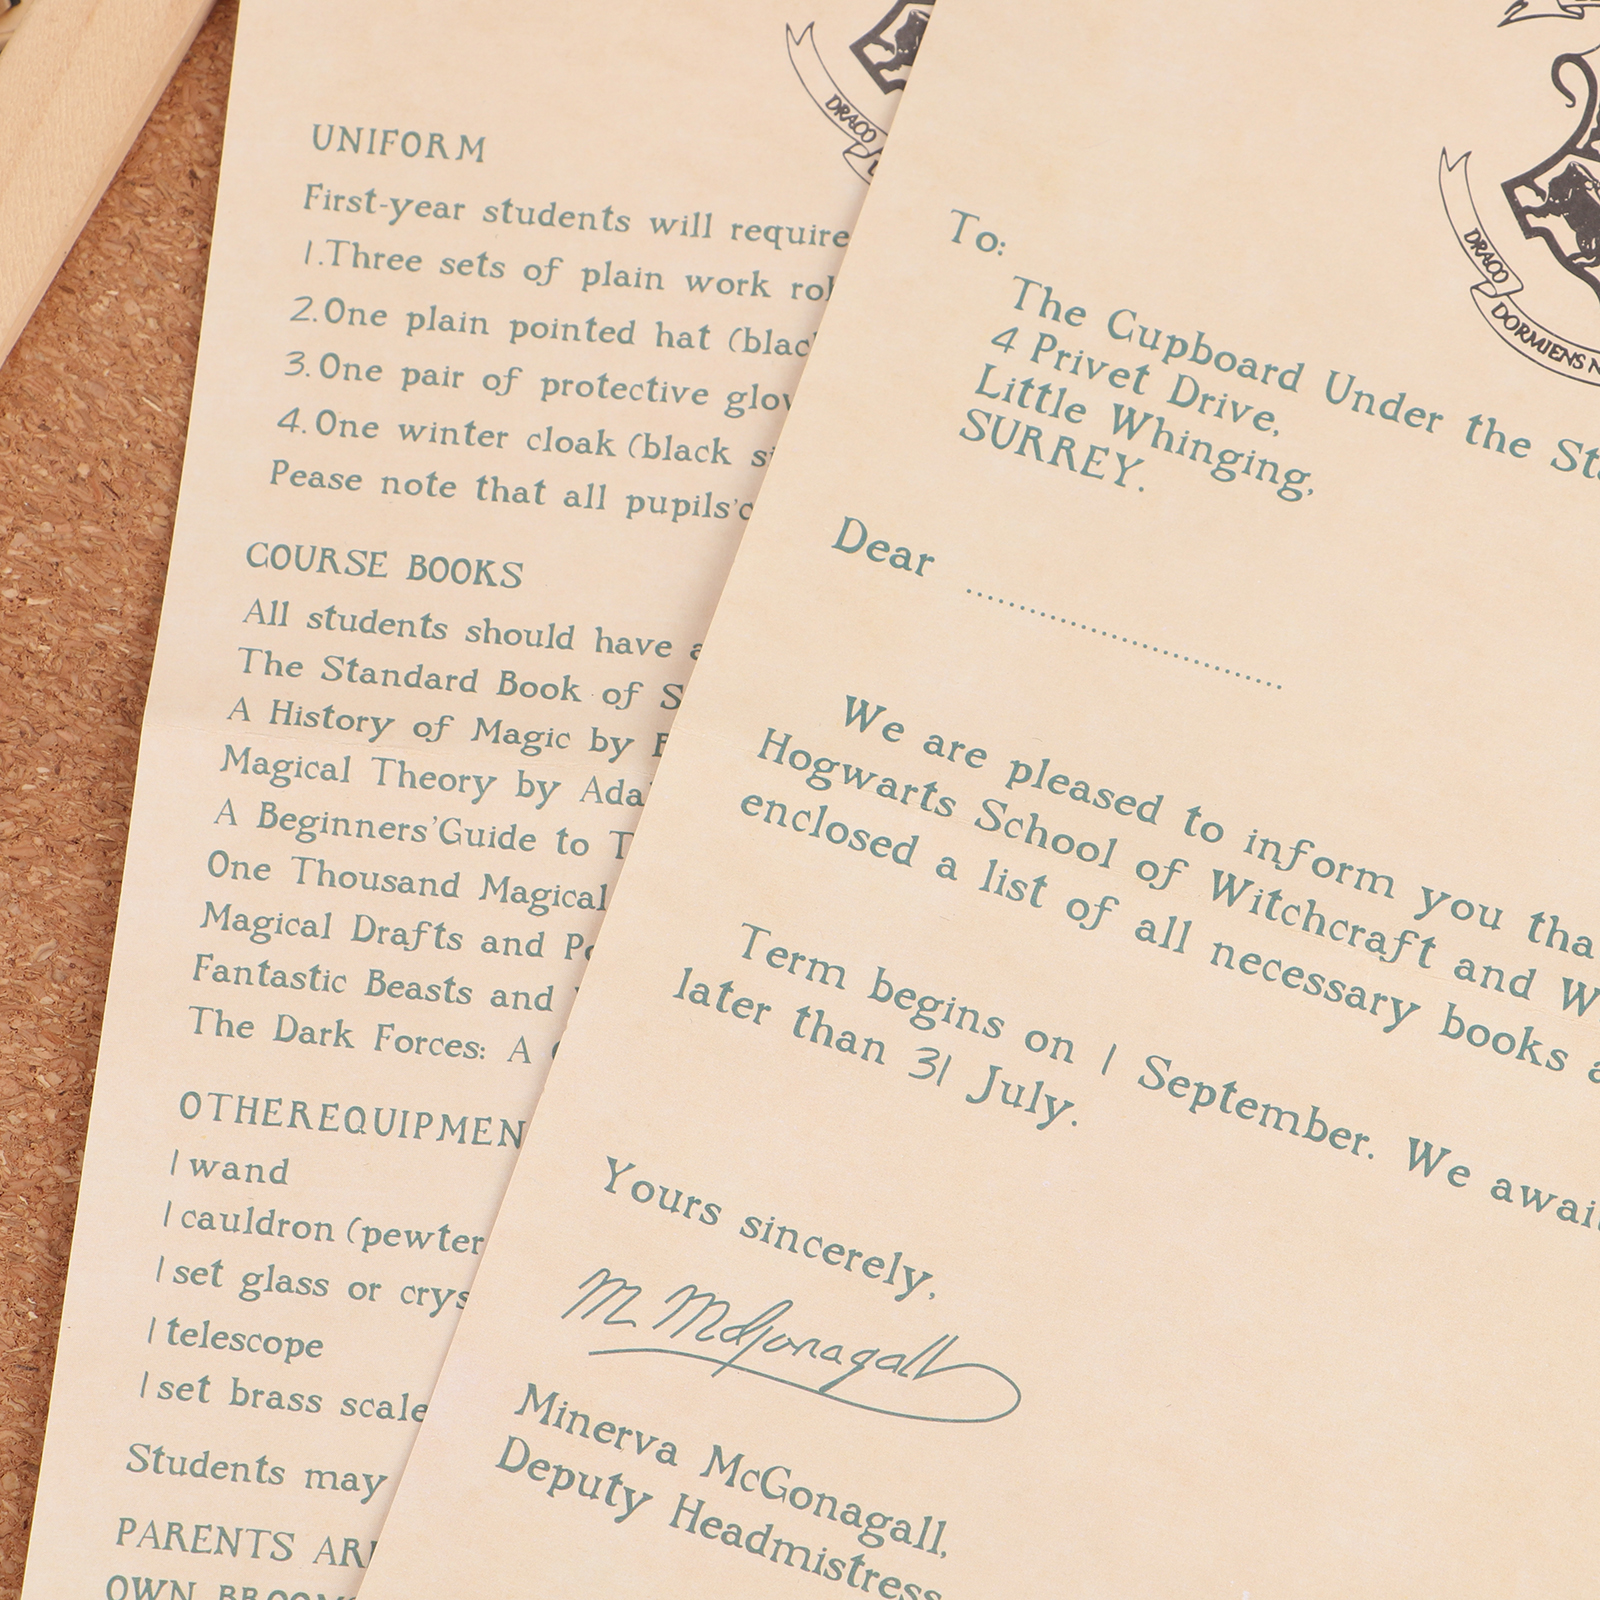 DRACO
UNIFORM
First-year students will require
1.Three sets of plain work
2.One plain pointed hat
3.One pair of protective
4.One winter cloak (black
Pease note that all pupils'
COURSE BOOKS
All students should have
The Standard Book of
A History of Magic by
Magical Theory by
A Beginners'Guide to
One Thousand Magical
Magical Drafts and
Fantastic Beasts and
The Dark Forces: A
OTHEREQUIPMEN
1 wand
1 cauldron (pewter
1 set glass or
1 telescope
1 set brass scale
Students may
PARENTS
OWN
DRACO DORMIENS
To:
The Cupboard Under the
4 Privet Drive,
Little Whinging,
SURREY.
Dear ..............................
We are pleased to inform you
Hogwarts School of Witchcraft and
enclosed a list of all necessary books
Term begins on 1 September. We
later than 31 July.
Yours sincerely,
M McGonagall
Minerva McGonagall,
Deputy Headmistress